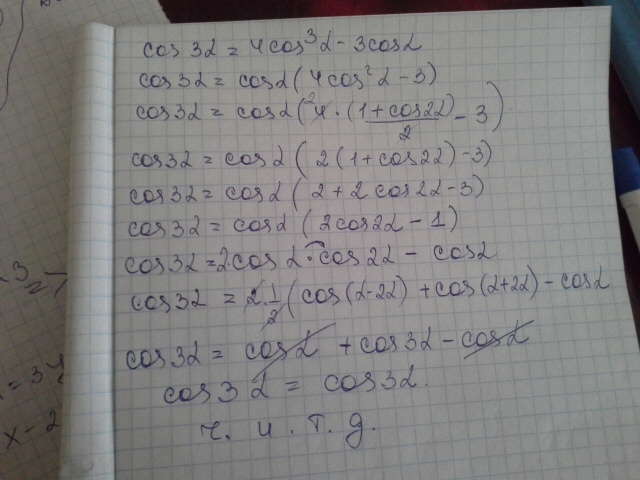 cos 3α = 4cos³α - 3cosα
cos 3α = cosα (4cos²α - 3)
cos3α = cosα (²4 · (1+cos2α)/2 - 3)
cos3α = cosα ( 2(1+cos2α) - 3)
cos3α = cosα ( 2 + 2cos2α - 3)
cos3α = cosα ( 2cos2α - 1)
cos3α = 2cosα · cos2α - cosα
cos3α = 2·1/2 (cos(α-2α) + cos(α+2α) - cosα
cos3α = cosα + cos3α - cosα
cos3α = cos3α.
ч. и. т. д.
-3
= 3
x - 2